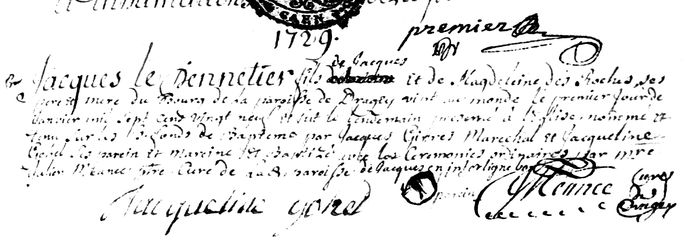 CAEN
premier
1729.
de Jacques
Jacques le Pennetier fils et de Magdeleine des Roches, ses
pere et mere du Bourg de la paroisse de Dragey vint au monde le premier jour de
Janvier mil sept cens vingt neuf et fut le lendemain presenté a l'Eglise nommé et
tenu sur les fonds de Bapteme par Jacques Marechal et Jacqueline
ses parein et mareine et Baptizé avec les Ceremonies ordinaires par mre
pre Curé de lad. paroisse de Jacques en interligne bon
Jacqueline
parain
Curé
de
Dragey